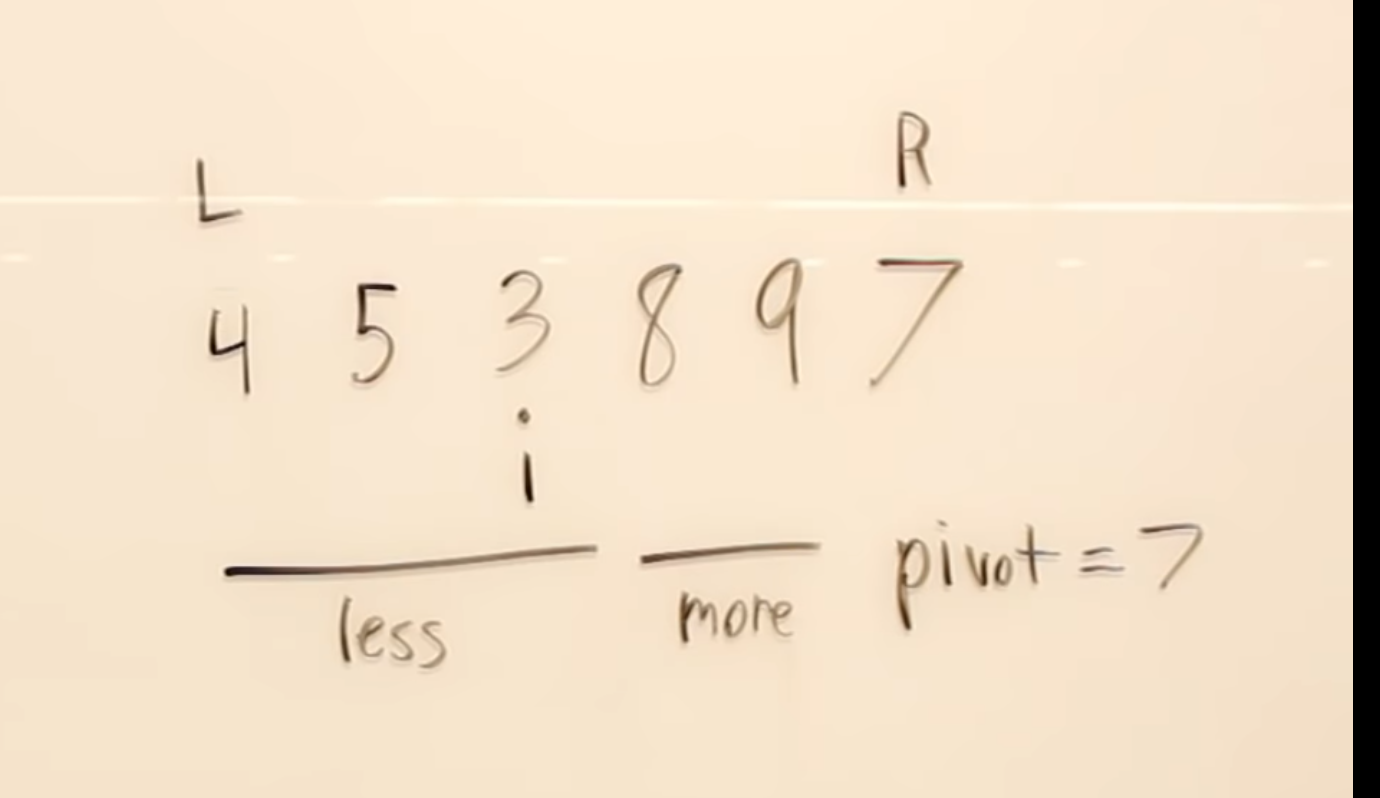 L R
4 5 3 8 9 7
i
less more pivot = 7